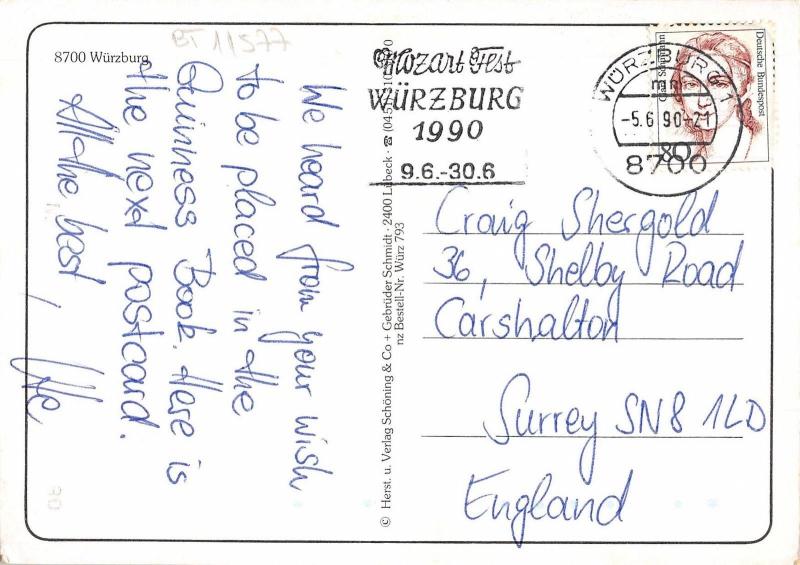 8700 Würzburg
BT 11577
We heard from your wish
to be placed in the
Guinness Book. Here is
the next postcard.
All the best,
Ute
© Herst. u. Verlag Schöning & Co + Gebrüder Schmidt · 2400 Lübeck · ☎ (0451)
nz Bestell-Nr. Würz 793
Mozart Fest
WÜRZBURG
1990
9.6.-30.6
WÜRZBURG 1
mm
-5.6.90-21
8700
Deutsche Bundespost
Clara Schumann
80
Craig Shergold
36, Shelby Road
Carshalton
Surrey SN8 1LD
England